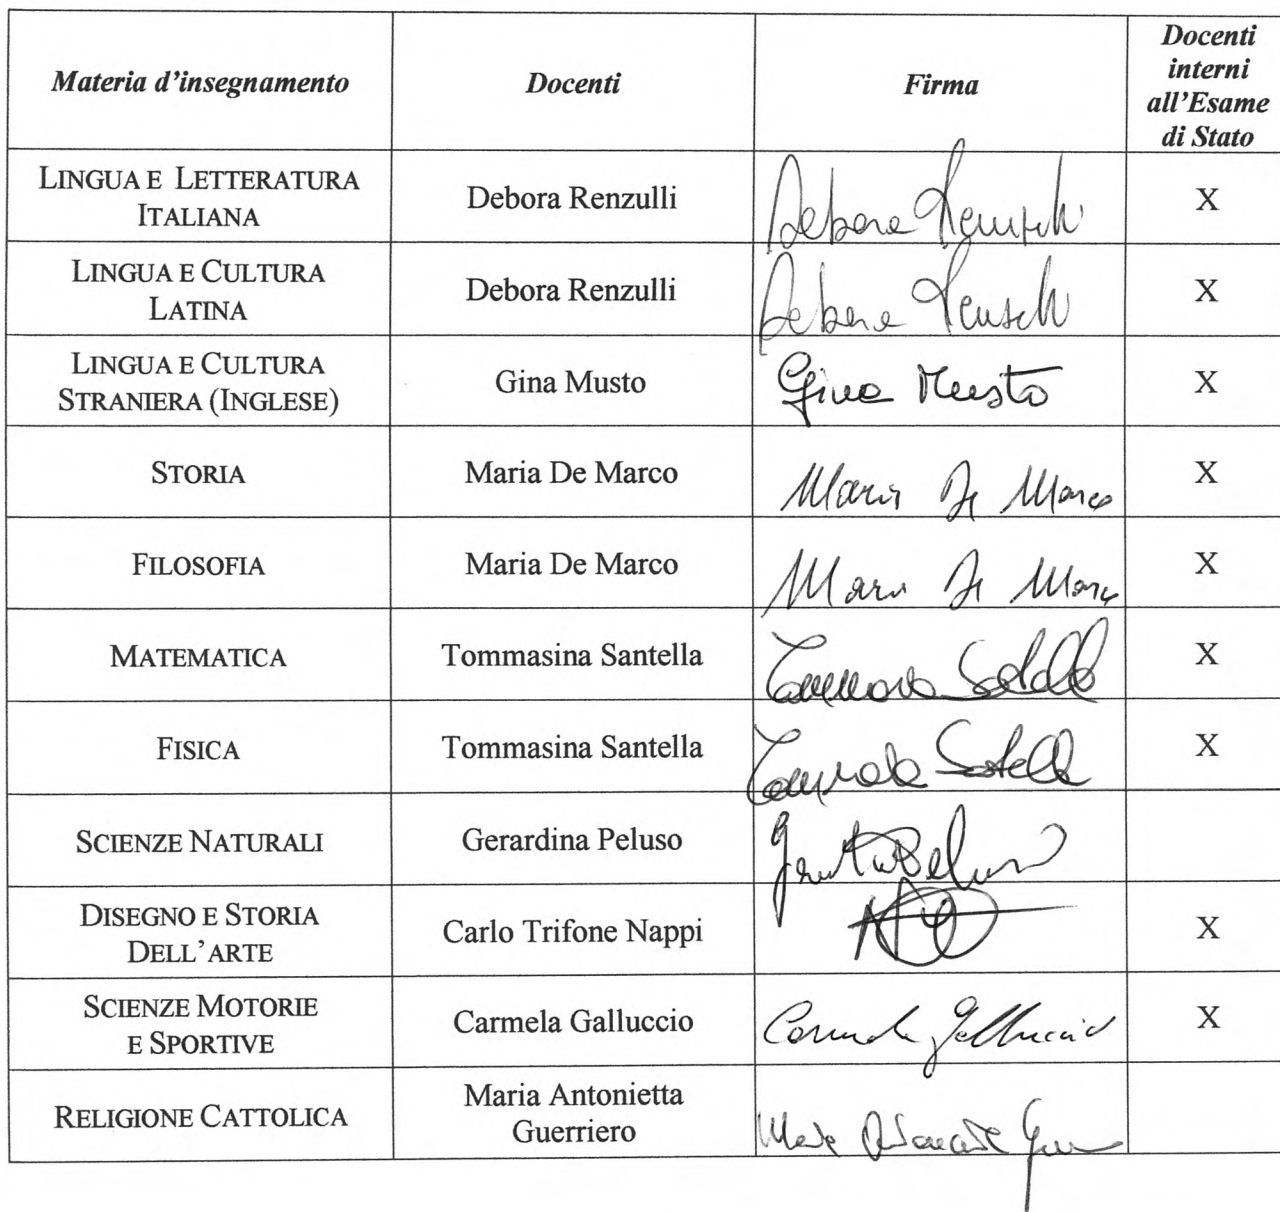 Materia d'insegnamento
Docenti
Firma
Docenti
interni
all'Esame
di Stato
LINGUA E LETTERATURA
ITALIANA
Debora Renzulli
Debora Renzulli
X
LINGUA E CULTURA
LATINA
Debora Renzulli
Debora Renzulli
X
LINGUA E CULTURA
STRANIERA (INGLESE)
Gina Musto
Gina Musto
X
STORIA
Maria De Marco
Maria De Marco
X
FILOSOFIA
Maria De Marco
Maria De Marco
X
MATEMATICA
Tommasina Santella
Santella
X
FISICA
Tommasina Santella
Santella
X
SCIENZE NATURALI
Gerardina Peluso
Peluso
DISEGNO E STORIA
DELL'ARTE
Carlo Trifone Nappi
X
SCIENZE MOTORIE
E SPORTIVE
Carmela Galluccio
Carmela Galluccio
X
RELIGIONE CATTOLICA
Maria Antonietta
Guerriero